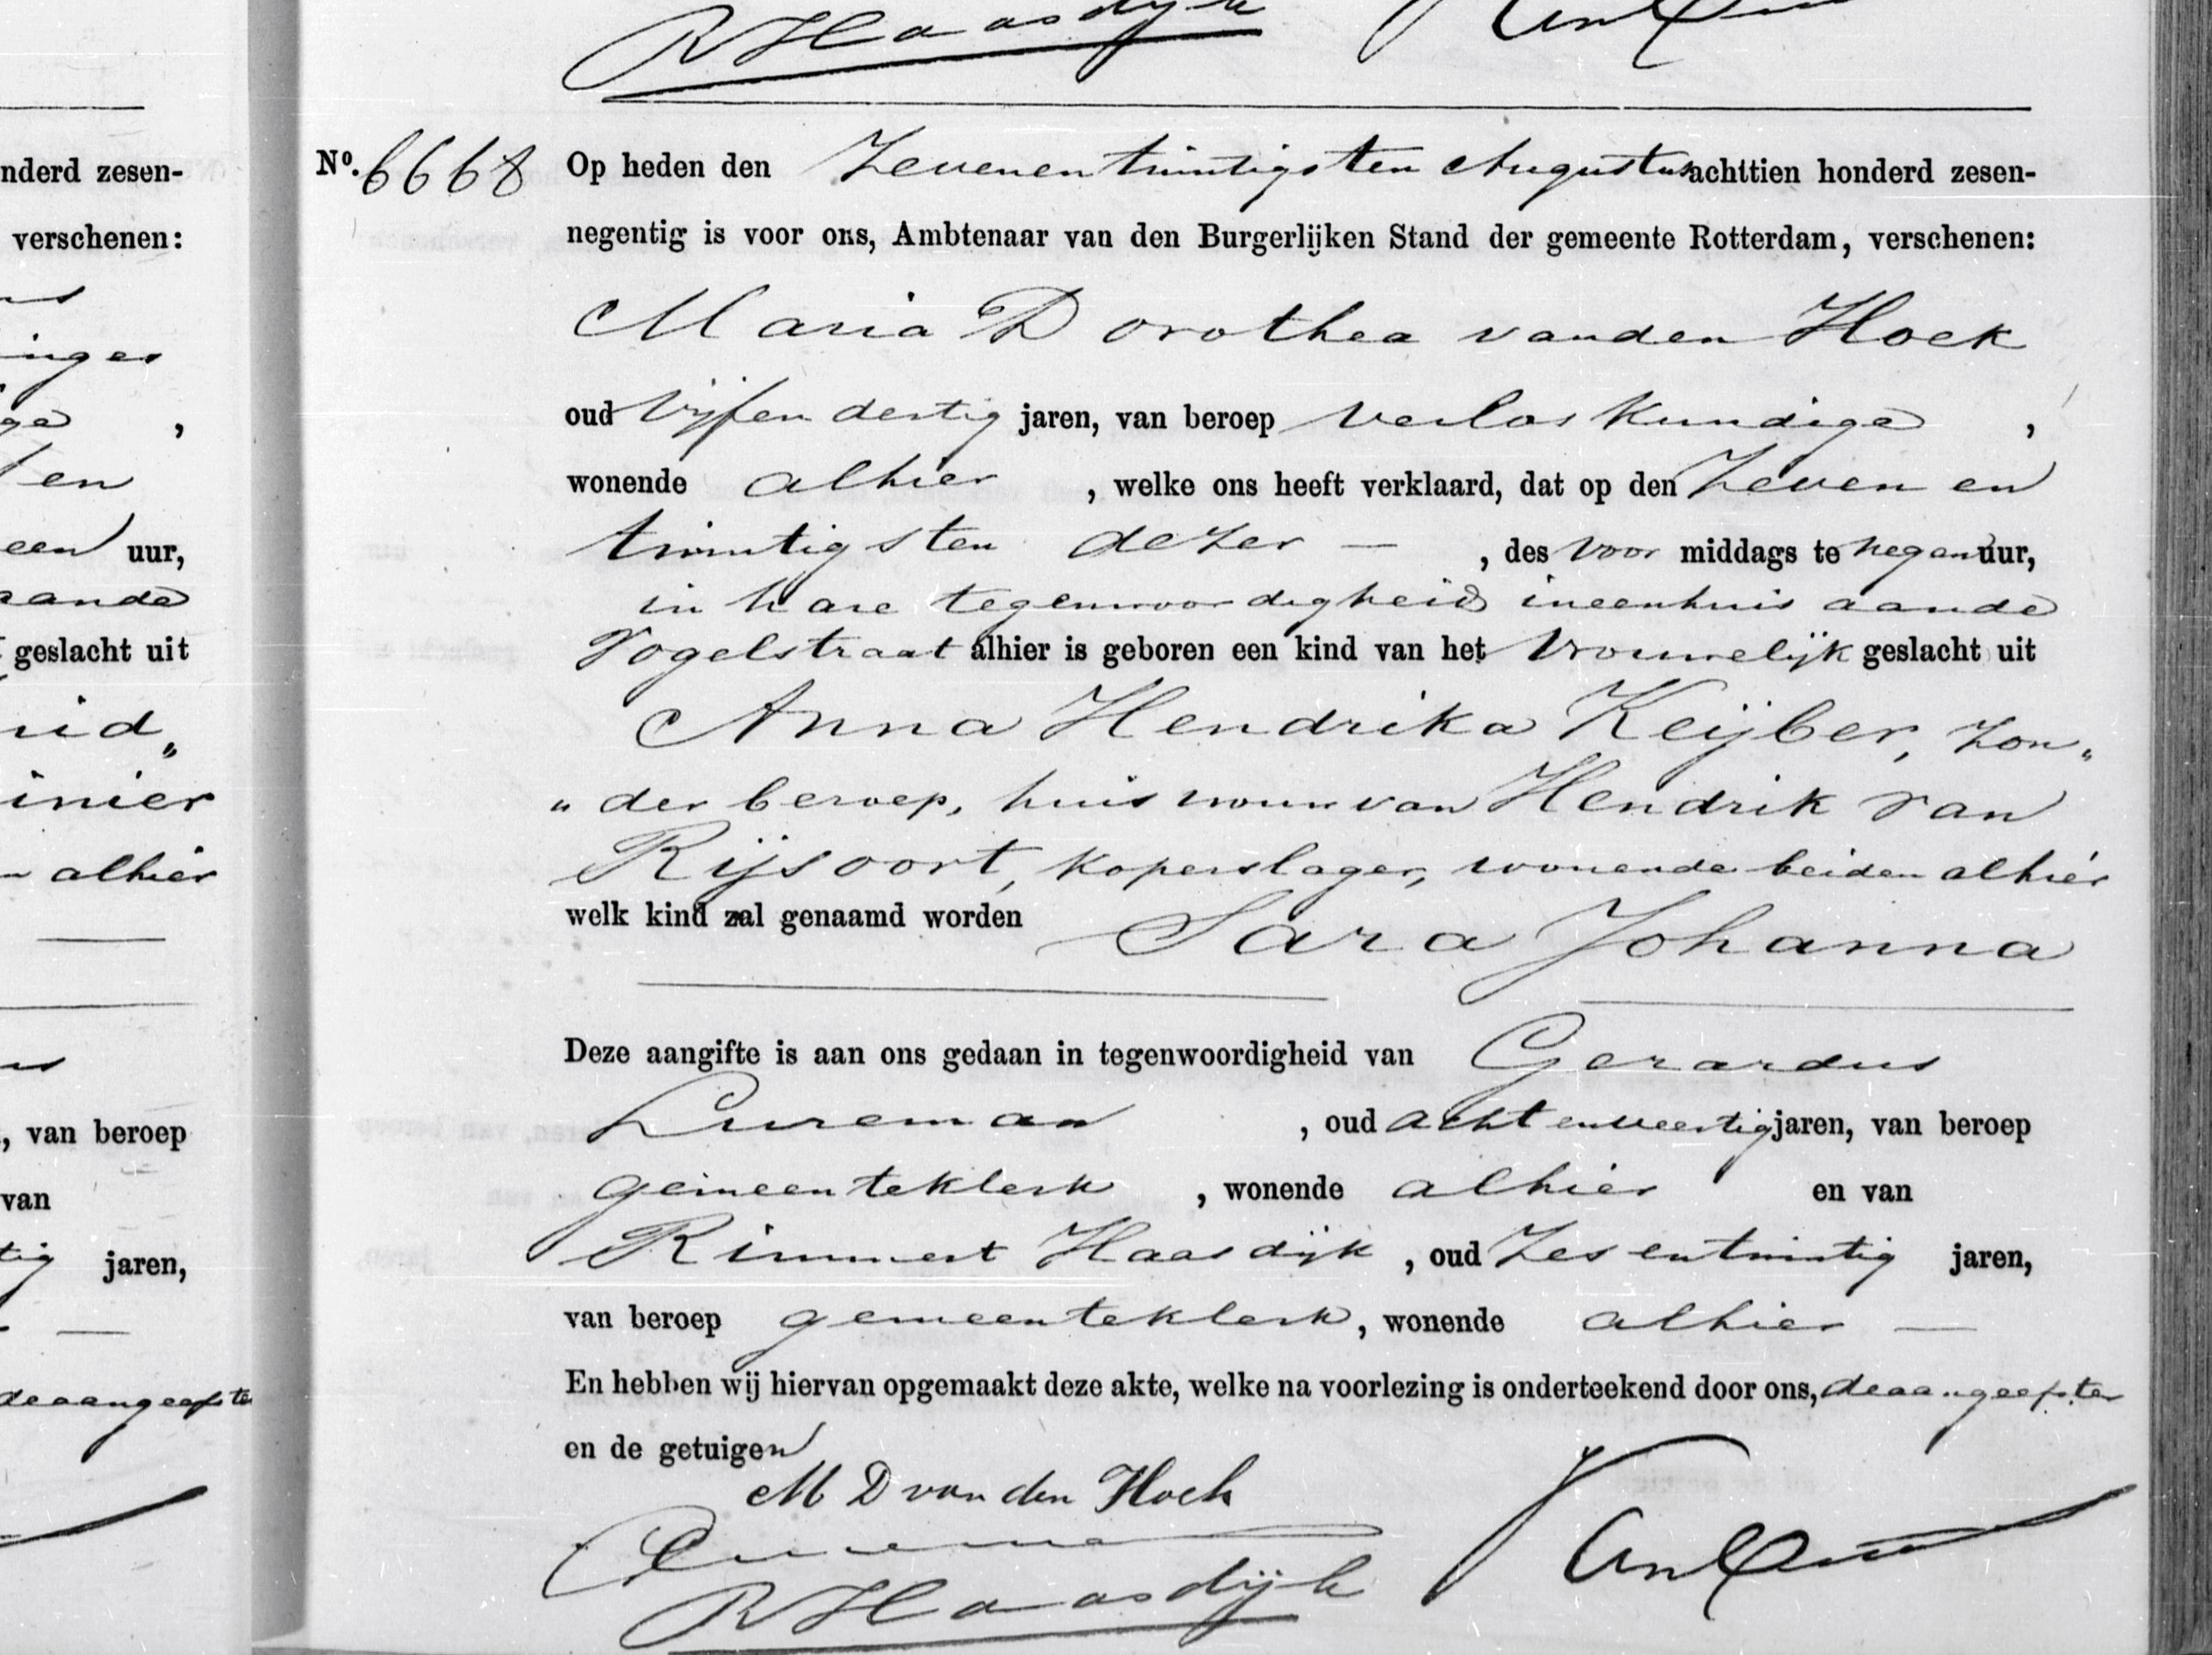 RHaasdijk
nderd zesen-
verschenen:
inges
ge ,
en
een uur,
aande
geslacht uit
uid„
inier
alhier
, van beroep
van
tig jaren,
deaangeefster
No. 6668 Op heden den Zevenentwintigsten Augustus achttien honderd zesen-
negentig is voor ons, Ambtenaar van den Burgerlijken Stand der gemeente Rotterdam, verschenen:
Maria Dorothea vanden Hoek
oud Vijfendertig jaren, van beroep Verloskundige ,
wonende alhier , welke ons heeft verklaard, dat op den Zeven en
twintigsten dezer — , des Voor middags te negen uur,
in hare tegenwoordigheid ineenhuis aande
Vogelstraat alhier is geboren een kind van het Vrouwelijk geslacht uit
Anna Hendrika Keijber, zon„
„der beroep, huisvrouw van Hendrik van
Rijsoort, koperslager, wonende beiden alhier
welk kind zal genaamd worden Sara Johanna
Deze aangifte is aan ons gedaan in tegenwoordigheid van Gerardus
Lureman , oud achtenveertig jaren, van beroep
gemeenteklerk , wonende alhier en van
Rimmert Haasdijk , oud Zesentwintig jaren,
van beroep gemeenteklerk, wonende alhier —
En hebben wij hiervan opgemaakt deze akte, welke na voorlezing is onderteekend door ons, deaangeefster
en de getuigen
M D van den Hoek
RHaasdijk